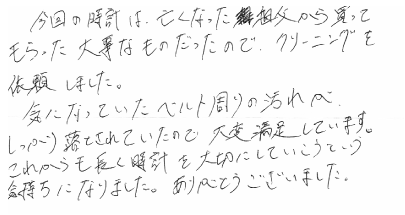 今回の時計は、亡くなった祖父から買って
もらった大事なものだったので、クリーニングを
依頼しました。
気になっていたベルト周りの汚れが、
しっかり落とされていたので大変満足しています。
これからも長く時計を大切にしていこうという
気持ちになりました。ありがとうございました。